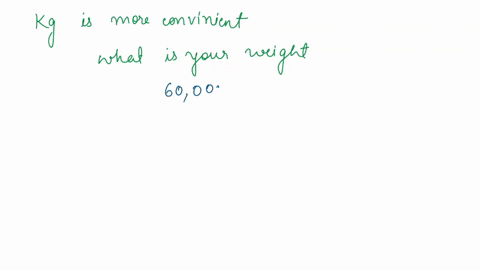 Kg is more convinient
what is your weight
60,00.